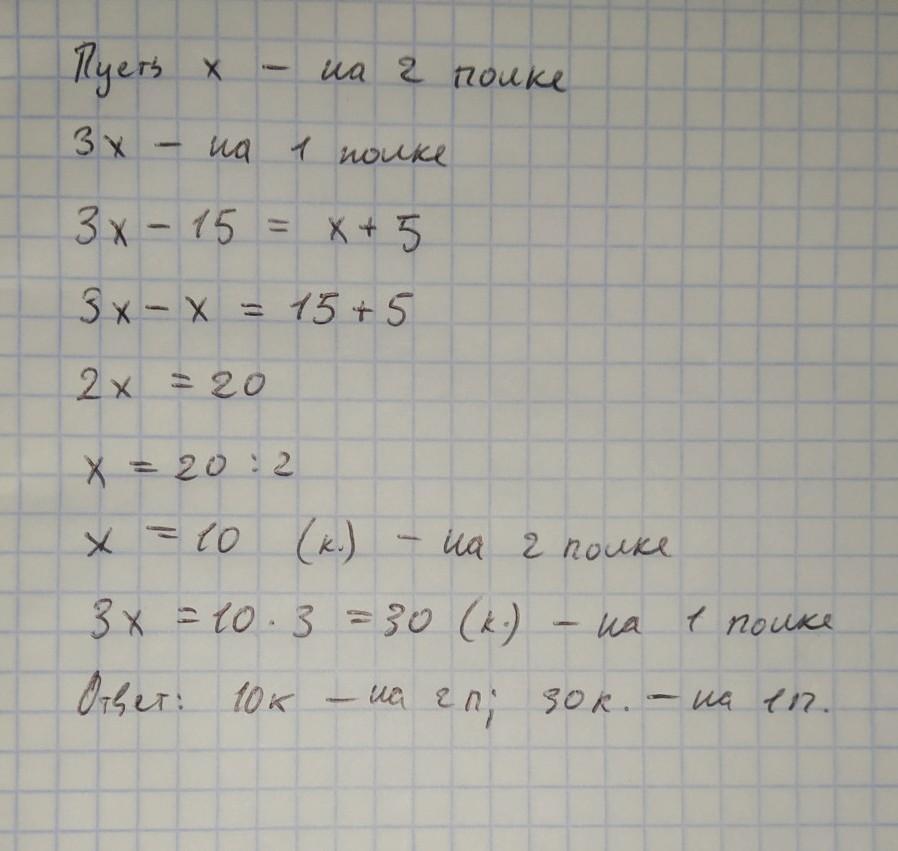 Пусть x - на 2 полке
3x - на 1 полке
3x - 15 = x + 5
3x - x = 15 + 5
2x = 20
x = 20 : 2
x = 10 (к.) - на 2 полке
3x = 10 · 3 = 30 (к.) - на 1 полке
Ответ: 10к - на 2п; 30к. - на 1п.